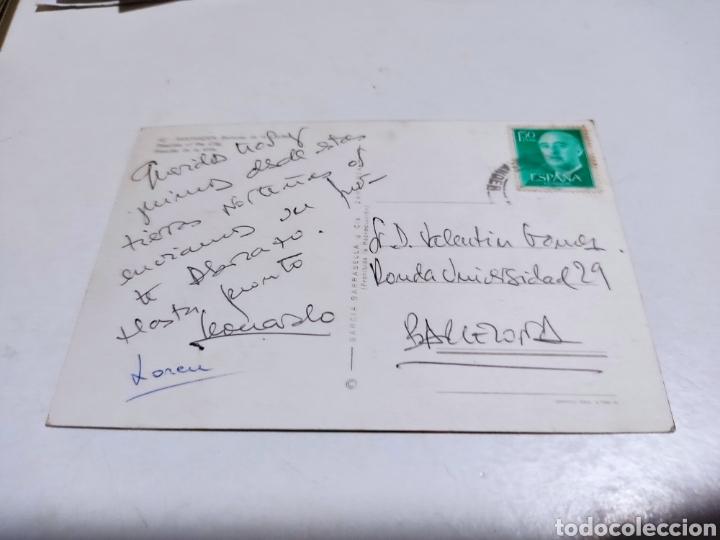 Queridos tios y
primos desde estas
tierras norteñas os
enviamos un fuer-
te abrazo.
Hasta pronto
Leonardo
Loren
GARCIA GARRABELLA y Cía.
©
1'50
ESPAÑA
Sr. D. Valentin Gomez.
Ronda Universidad 29
BARCELONA
todocoleccion